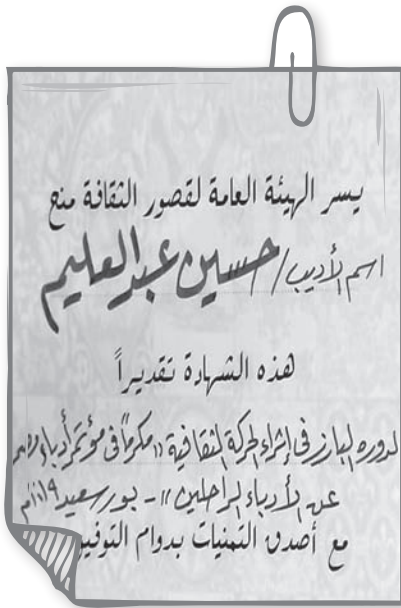 يسر الهيئة العامة لقصور الثقافة منح
اسم الأديب / حسين عبد العليم
هذه الشهادة تقديراً
لدوره البارز فى إثراء الحركة الثقافية "مكرماً فى مؤتمر أدباء مصر
عن الأدباء الراحلين" - بورسعيد
مع أصدق التمنيات بدوام التوفيق